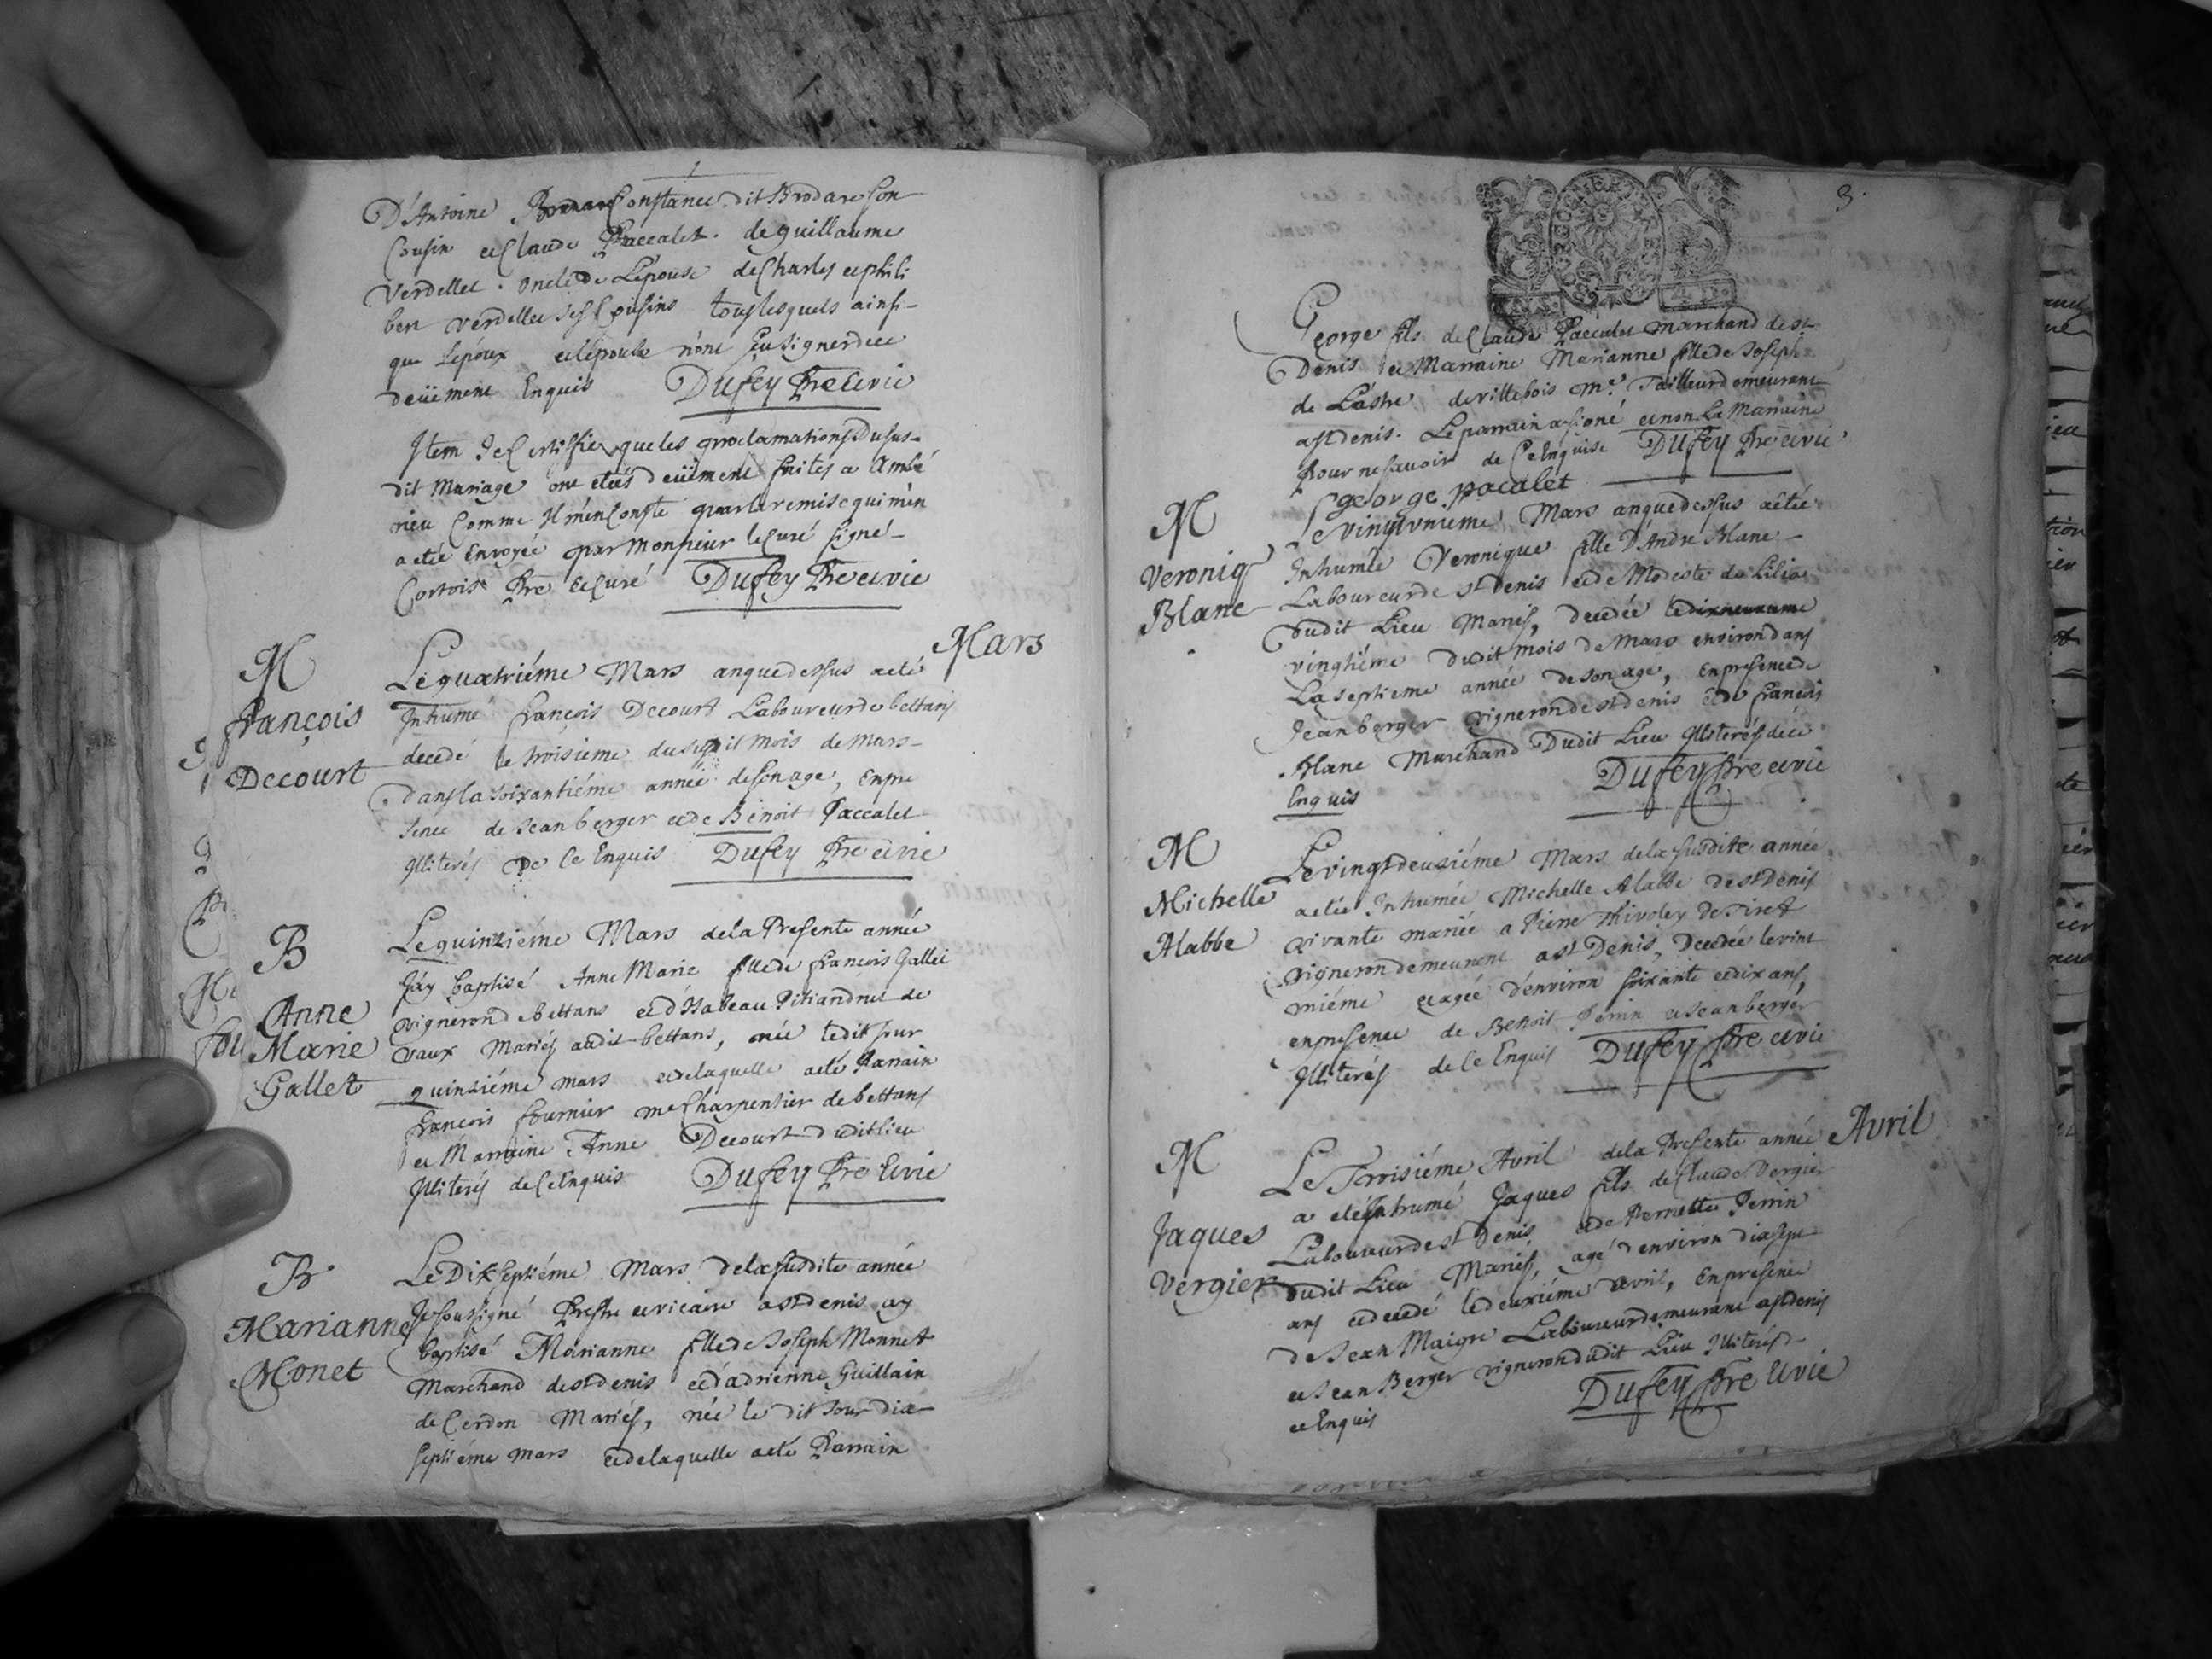 D'Antoine Constance dit Brodare son
Cousin et Claude Paccalet. de guillaume
Verdellet. oncle de L'epouse de Charles et phili
bert verdellet ses Cousins tous lesquels ainsi
que L'epoux et l'epouse n'ont sçu signer de ce
deüement Enquis Dufey Pre et vic
Item Je Certiffie que les proclamations Dusus
dit Mariage ont etés deüement faites a Ambé
rieu Comme Il m'en Conste par la remise qui m'en
a etée Envoyée par Monsieur le Curé signé
Cortois Pre et Curé Dufey Pre et vic
Mars
M
françois
Decourt
Le quatriéme Mars an que dessus a eté
Inhumé françois Decourt Laboureur de bettans
decedé le troisieme dususdit mois de Mars
dans la soixantiéme année de son age, En pre
sence de Jean berger et de Benoit Paccalet
Illiterés De Ce Enquis Dufey Pre et vic
B
Anne
Marie
Gallet
Le quinziéme Mars de la Presente année
J'ay baptisé Anne Marie fille de françois Gallet
vigneron de bettans et d'Isabeau Pitiandnet de
vaux Mariés audit bettans, née ledit jour
quinziéme mars et de laquelle a eté Parrain
françois fournier me Charpentier de bettans
et Marraine Anne Decourt dudit lieu
Illiterés de Ce Enquis Dufey Pre et vic
B
Marianne
Monet
Le Dixseptiéme Mars de la susdite année
Je soussigné Prestre et vicaire a st denis ay
baptisé Marianne fille de Joseph Monnet
Marchand de st denis et d'adrienne Guillain
de Cerdon Mariés, née le dit Jour dix
septiéme mars et de laquelle a eté Parrain
3.
George fils de Claude Paccalet marchand de st
Denis et Marraine Marianne fille de Joseph
de Lastre de villebois me Tailleur demeurant
a st denis. Le parrain a signé et non La Marraine
pour ne savoir de Ce Enquise Dufey Pre et vic
george pacalet
M
Veroniq
Blanc
Le vingtunieme Mars an que dessus a etée
Inhumée Veronique fille D'André Blanc
Laboureur de st Denis et de Modeste du Lilia
dudit Lieu Mariés, decedée le
vingtiéme dudit mois de Mars environ dans
La septieme année de son age, en presence de
Jean berger vigneron de st denis et de françois
Blanc Marchand Dudit Lieu Illiterés de ce
Enquis Dufey Pre et vic
M
Michelle
Alabbe
Le vingtdeuxiéme Mars de la susdite année
a etée Inhumée Michelle Alabbe de st Denis
vivante mariée a Pierre Thivoley de Tiret
vigneron demeurant a st Denis, Decedée le vint
uniéme et agée d'environ soixante et dix ans,
en presence de Benoit Perrin et Jean berger
Illiterés de Ce Enquis Dufey Pre et vic
Avril
M
Jaques
Vergier
Le Troisiéme Avril de la Presente année
a eté Inhumé Jaques fils de Claude Vergier
Laboureur de st Denis et de Pernette Perrin
dudit Lieu Mariés, agé d'environ dixsept
ans et decedé le deuxiéme avril, En presence
de Jean Maigre Laboureur demeurant a st denis
et Jean Berger vigneron dudit Lieu Illiterés de
ce Enquis Dufey Pre et vic